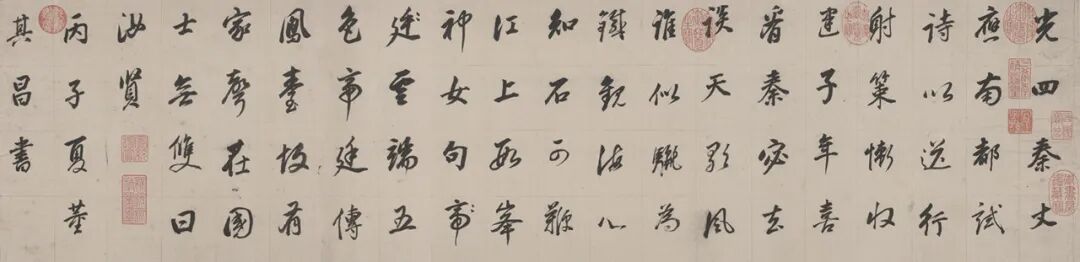 光四秦丈
應南都試
詩以送行
射策慚收
建子年喜
看秦宓去
談天歌風
誰似驪為
鐵觀海心
知石可鞭
江上數峯
神女句帝
廷雲端五
色帝廷傳
鳳臺故有
家聲在國
士無雙曰
汝賢
丙子夏董
其昌書